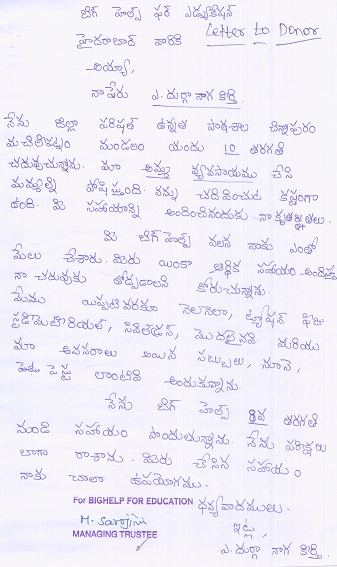 బిగ్ హెల్ప్ ఫర్ ఎడ్యుకేషన్
హైదరాబాద్ వారికి Letter to Donor
అయ్యా,
నాపేరు ఎ.దుర్గా నాగ కీర్తి.
నేను జిల్లా పరిషత్ ఉన్నత పాఠశాల చిన్నాపురం
మచిలీపట్నం మండలం యందు 10 తరగతి
చదువుచున్నాను. మా అమ్మ వ్యవసాయము చేసి
మమ్మల్ని పోషిస్తుంది. నన్ను చదివించుట కష్టంగా
ఉంది. మీ సహాయాన్ని అందించినందుకు నా కృతజ్ఞతలు.
మీ బిగ్ హెల్ప్ వలన నాకు ఎంతో
మేలు చేశారు. మీరు యింకా ఆర్థిక సహాయం అందిస్తూ
నా చదువుకు తోడ్పడాలని కోరుచున్నాను.
మేము యిప్పటి వరకూ నెలనెలా, ట్యూషన్ ఫీజు
స్టడీమెటీరియల్, మొదలైనవి మరియు
మా అవసరాలు అయిన సబ్బులు, నూనె,
పేస్ట్ లాంటివి అందుకున్నాను.
నేను బిగ్ హెల్ప్ 8వ తరగతి
నుండి సహాయం పొందుతున్నాను. నేను పరీక్షలు
బాగా రాశాను. మీరు చేసిన సహాయం
నాకు చాలా ఉపయోగము.
For BIGHELP FOR EDUCATION ధన్యవాదములు.
M. Sarojini ఇట్లు,
MANAGING TRUSTEE ఎ.దుర్గా నాగ కీర్తి.